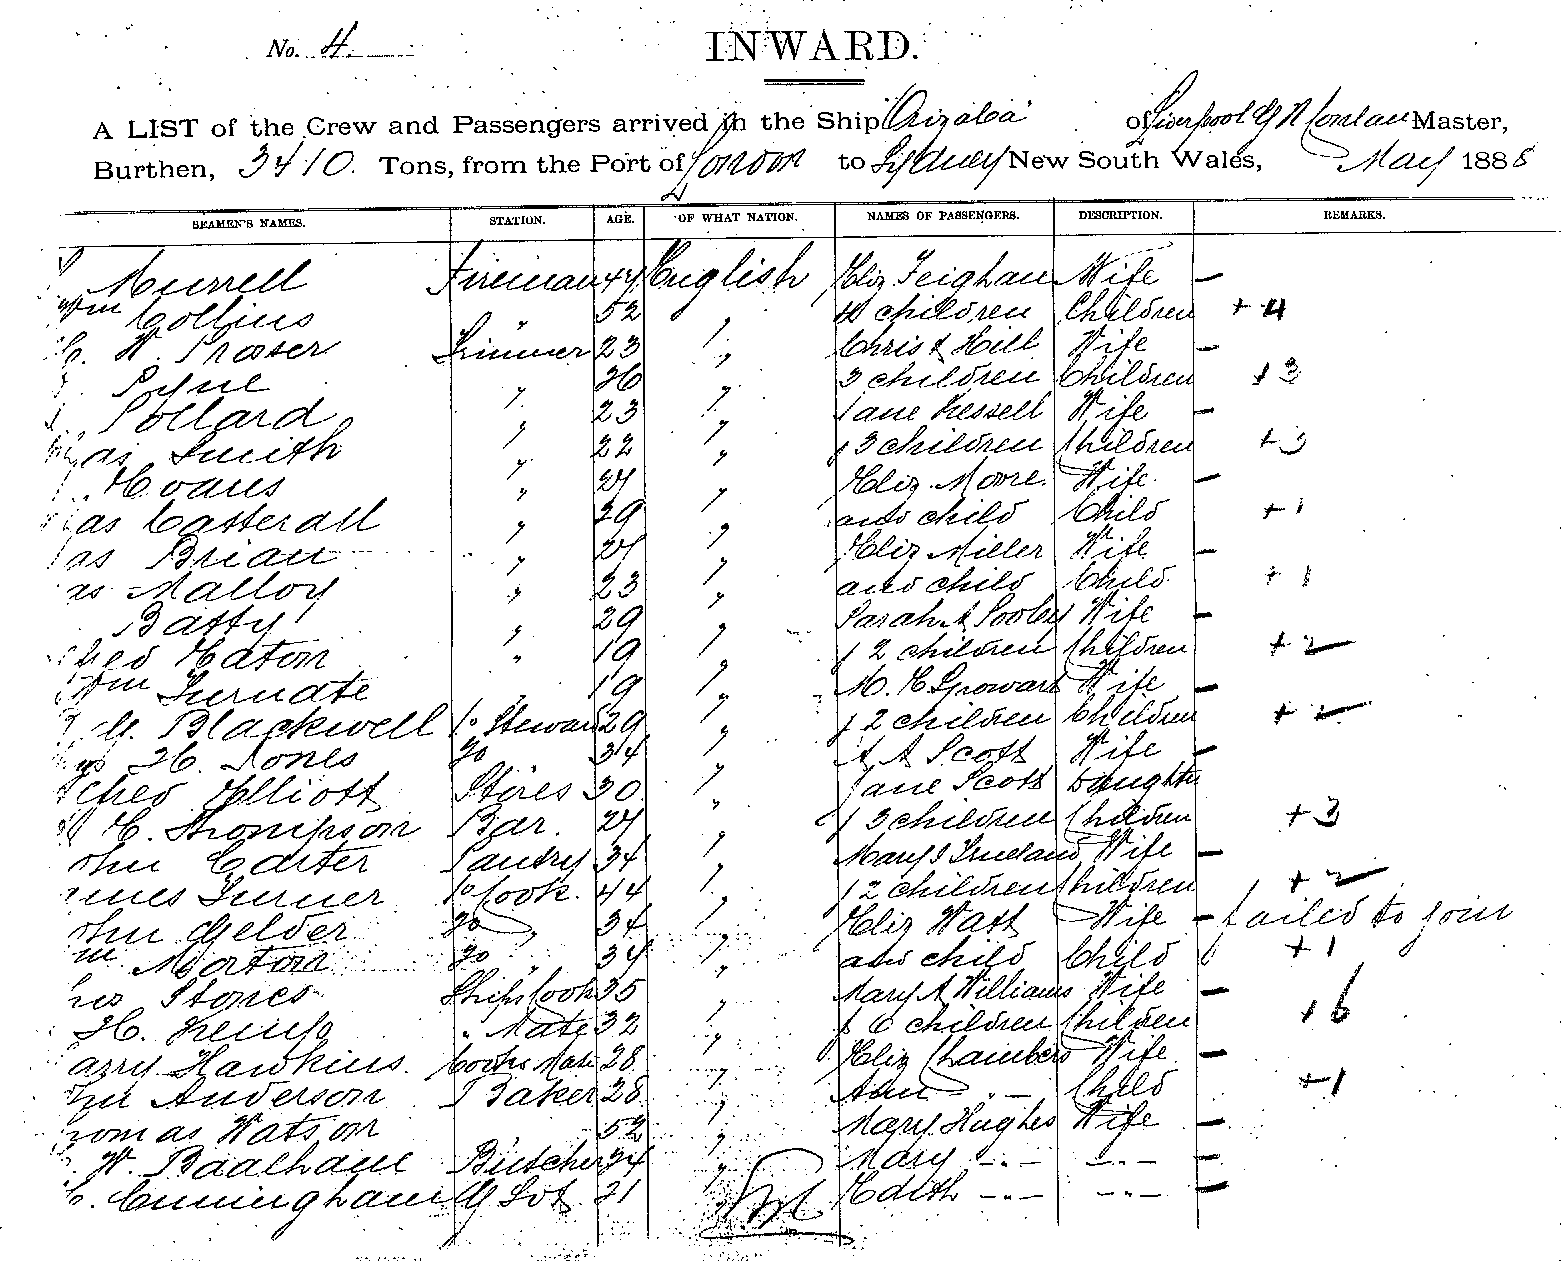 No. 4
INWARD.
A LIST of the Crew and Passengers arrived in the Ship "Orizaba" of Liverpool G N Conlan Master,
Burthen, 3410 Tons, from the Port of London to Sydney New South Wales, May 1888
SEAMEN'S NAMES. STATION. AGE. OF WHAT NATION. NAMES OF PASSENGERS. DESCRIPTION. REMARKS.
Murrell Fireman 47 English Eliz Feighan Wife —
Wm Collins " 52 " 4 children Children +4
C. W. Prosser Trimmer 23 " Chris A Hill Wife —
Pyne " 26 " 3 children Children +3
Pollard " 23 " Jane Kessell Wife —
as Smith " 22 " 3 children Children +3
Evans " 24 " Eliz Moore Wife —
as Catterall " 29 " and child Child +1
as Brian " 24 " Eliz Miller Wife —
as Malloy " 23 " and child Child +1
Batty " 29 " Sarah A Pooley Wife —
fred Eaton " 19 " 2 children Children +2
Wm " 19 " M. E Wife —
G. Blackwell Stewart 29 " 2 children Children +2
H. Jones Do 34 " A A Scott Wife —
Elliott Stores 30 " Jane Scott Daughter
E. Thompson Bar. 24 " 3 children Children +3
ohn Carter Pantry 34 " Mary Wife —
ames Turner Cook. 44 " 2 children Children +2
ohn Gelder Do " 34 " Eliz Watt Wife — failed to join
m Morton Do " 34 " and child Child +1
Stones Ships Cook 35 " Mary A Williams Wife —
H. Kemp " Mate 32 " 6 children Children +6
arry Hawkins. Cooks Mate 28 " Eliz Chambers Wife —
Anderson Baker 28 " Ann — " — Child +1
homas Watson 52 " Mary Hughes Wife —
W. Baalham Butcher 24 " Mary — " — — " — —
C. Cunningham 21 Edith — " — — " — —